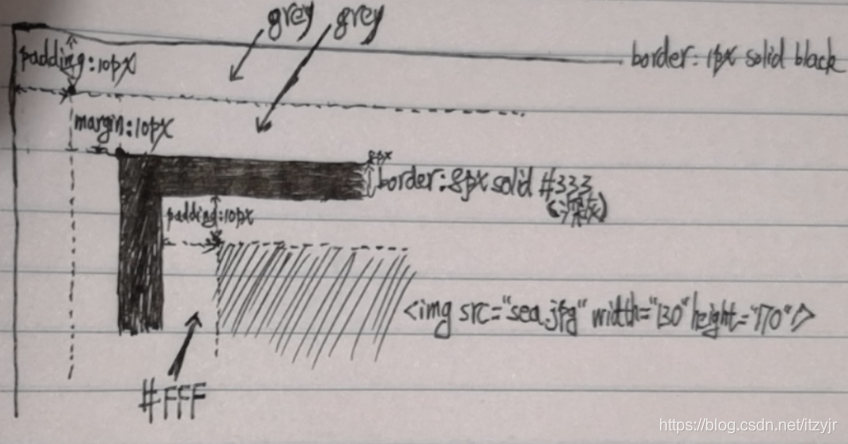 grey grey
border: 1px solid black
padding:10px
margin:10px
8px
border:8px solid #333
padding:10px
<img src="sea.jpg" width="130" height="170"/>
#FFF
https://blog.csdn.net/itzyjr